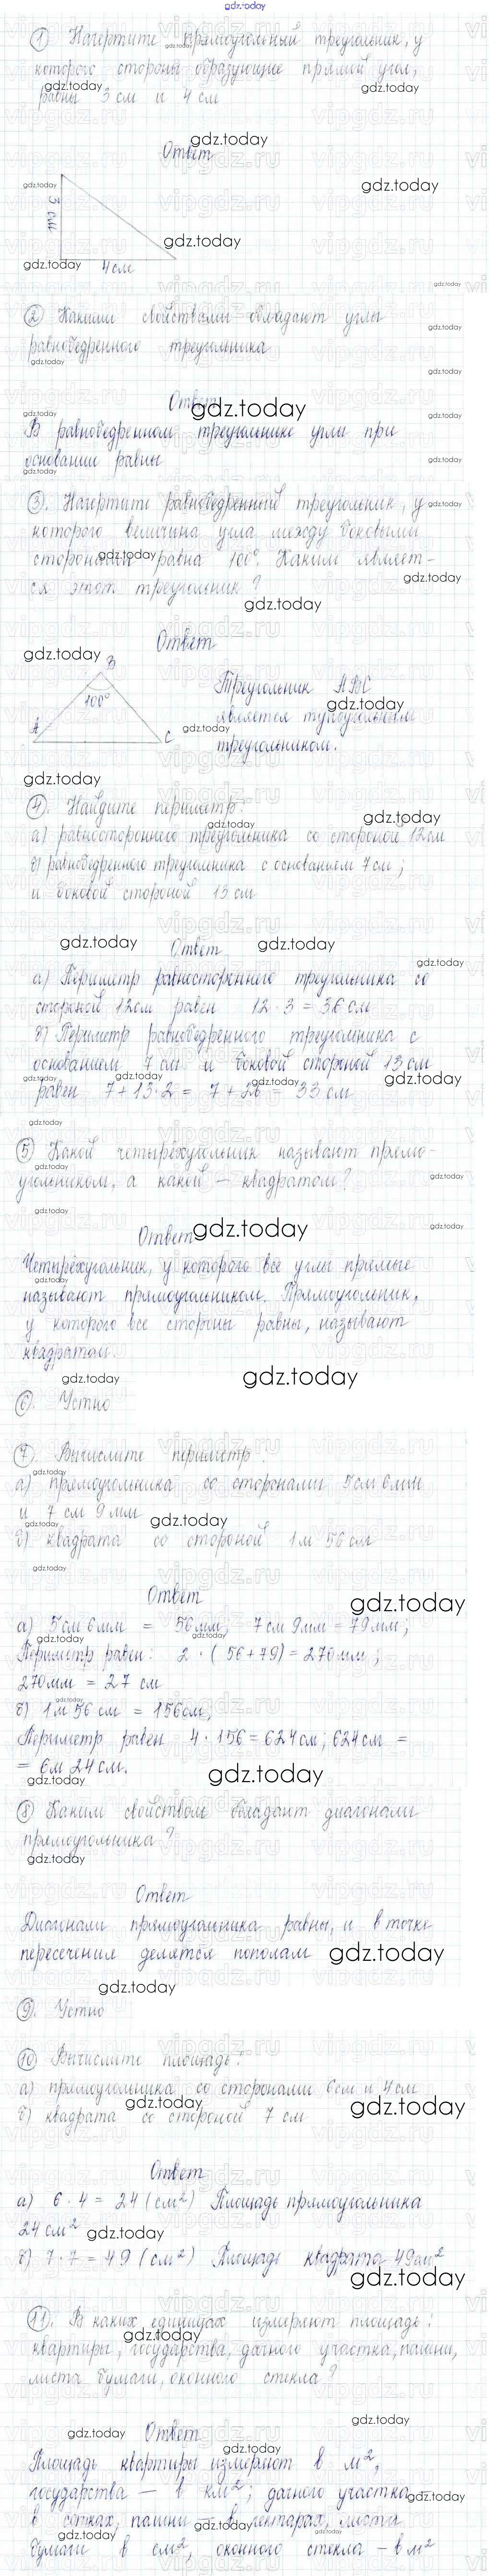 gdz.today
① Начертите прямоугольный треугольник, у
которого стороны образующие прямой угол,
равны 3 см и 4 см
Ответ
3 см
4 см
② Какими свойствами обладают углы
равнобедренного треугольника
Ответ
В равнобедренном треугольнике углы при
основании равны
③. Начертите равнобедренный треугольник, у
которого величина угла между боковыми
сторонами равна 100°. Каким являет-
ся этот треугольник?
Ответ
B
100°
A
C
Треугольник ABC
является тупоугольным
треугольником.
④. Найдите периметр:
а) равностороннего треугольника со стороной 12 см
б) равнобедренного треугольника с основанием 7 см;
и боковой стороной 13 см
Ответ
а) Периметр равностороннего треугольника со
стороной 12см равен 12 · 3 = 36 см
б) Периметр равнобедренного треугольника с
основанием 7 см и боковой стороной 13 см
равен 7 + 13·2 = 7 + 26 = 33 см
⑤ Какой четырёхугольник называют прямо-
угольником, а какой – квадратом?
Ответ
Четырёхугольник, у которого все углы прямые
называют прямоугольником. Прямоугольник,
у которого все стороны равны, называют
квадратом.
⑥. Устно
⑦. Вычислите периметр:
а) прямоугольника со сторонами 5см 6мм
и 7 см 9 мм
б) квадрата со стороной 1м 56 см
Ответ
а) 5см 6мм = 56мм; 7см 9мм = 79мм;
Периметр равен: 2 · (56 + 79) = 270мм;
270мм = 27 см
б) 1м 56 см = 156см;
Периметр равен 4 · 156 = 624 см; 624 см =
= 6м 24 см.
⑧ Каким свойством обладают диагонали
прямоугольника?
Ответ
Диагонали прямоугольника равны, и в точке
пересечения делятся пополам
⑨. Устно
⑩ Вычислите площадь:
а) прямоугольника со сторонами 6см и 4см
б) квадрата со стороной 7 см
Ответ
а) 6 · 4 = 24 (см²) Площадь прямоугольника
24 см²
б) 7 · 7 = 49 (см²) Площадь квадрата 49 см²
⑪. В каких единицах измеряют площадь:
квартиры, государства, дачного участка, пашни,
листа бумаги, оконного стекла?
Ответ
Площадь квартиры измеряют в м²,
государства – в км²; дачного участка –
в сотках, пашни – в гектарах, листа
бумаги в см², оконного стекла – в м²